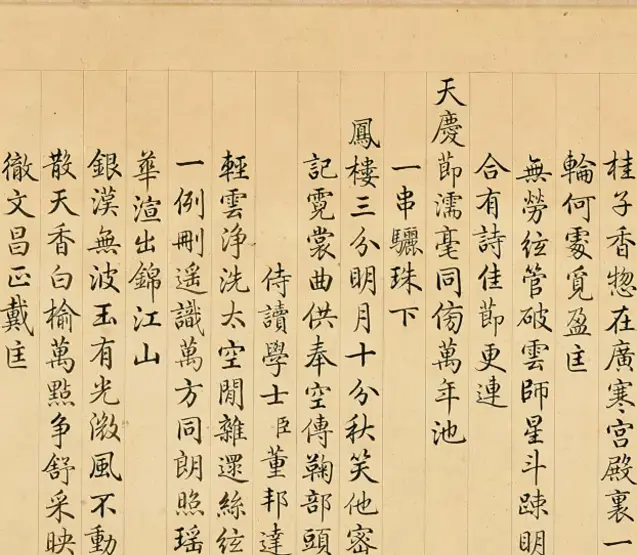 桂子香惣在廣寒宮殿裏一
輪何處覓盈匡
無勞絃管破雲師星斗踈明
合有詩佳節更連
天慶節濡毫同傍萬年池
一串驪珠下
鳳樓三分明月十分秋笑他密
記霓裳曲供奉空傳鞠部頭
侍讀學士臣董邦達
輕雲淨洗太空閒雜遝絲絃
一例刪遥識萬方同朗照瑶
華渲出錦江山
銀漢無波玉有光微風不動
散天香白榆萬點争舒采映
徹文昌正戴匡